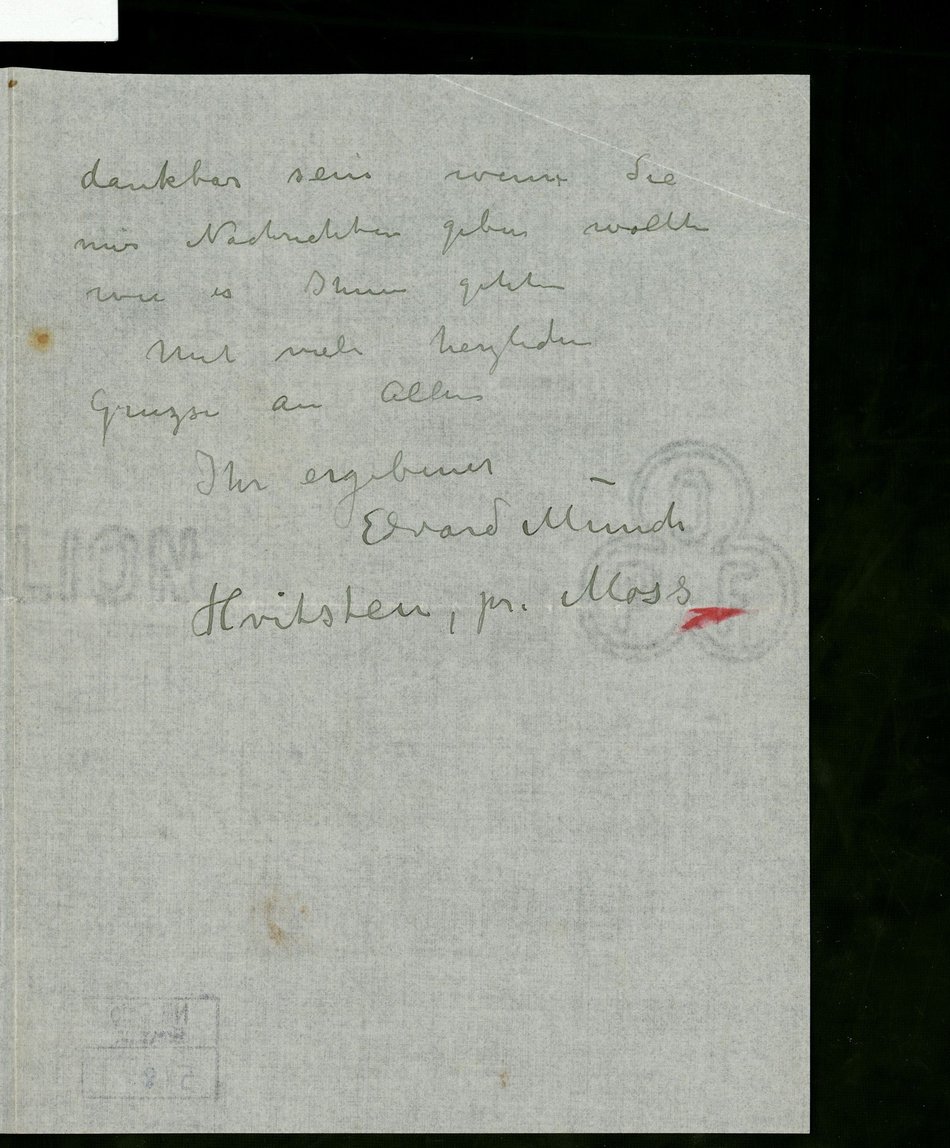 dankbar sein wenn Sie
mir Nachrichten geben wollten
wie es Ihnen geht
Mit viele herzlichen
Gruzse an Allen
Ihr ergebener
Edvard Munch
Hvitsten, pr. Moss